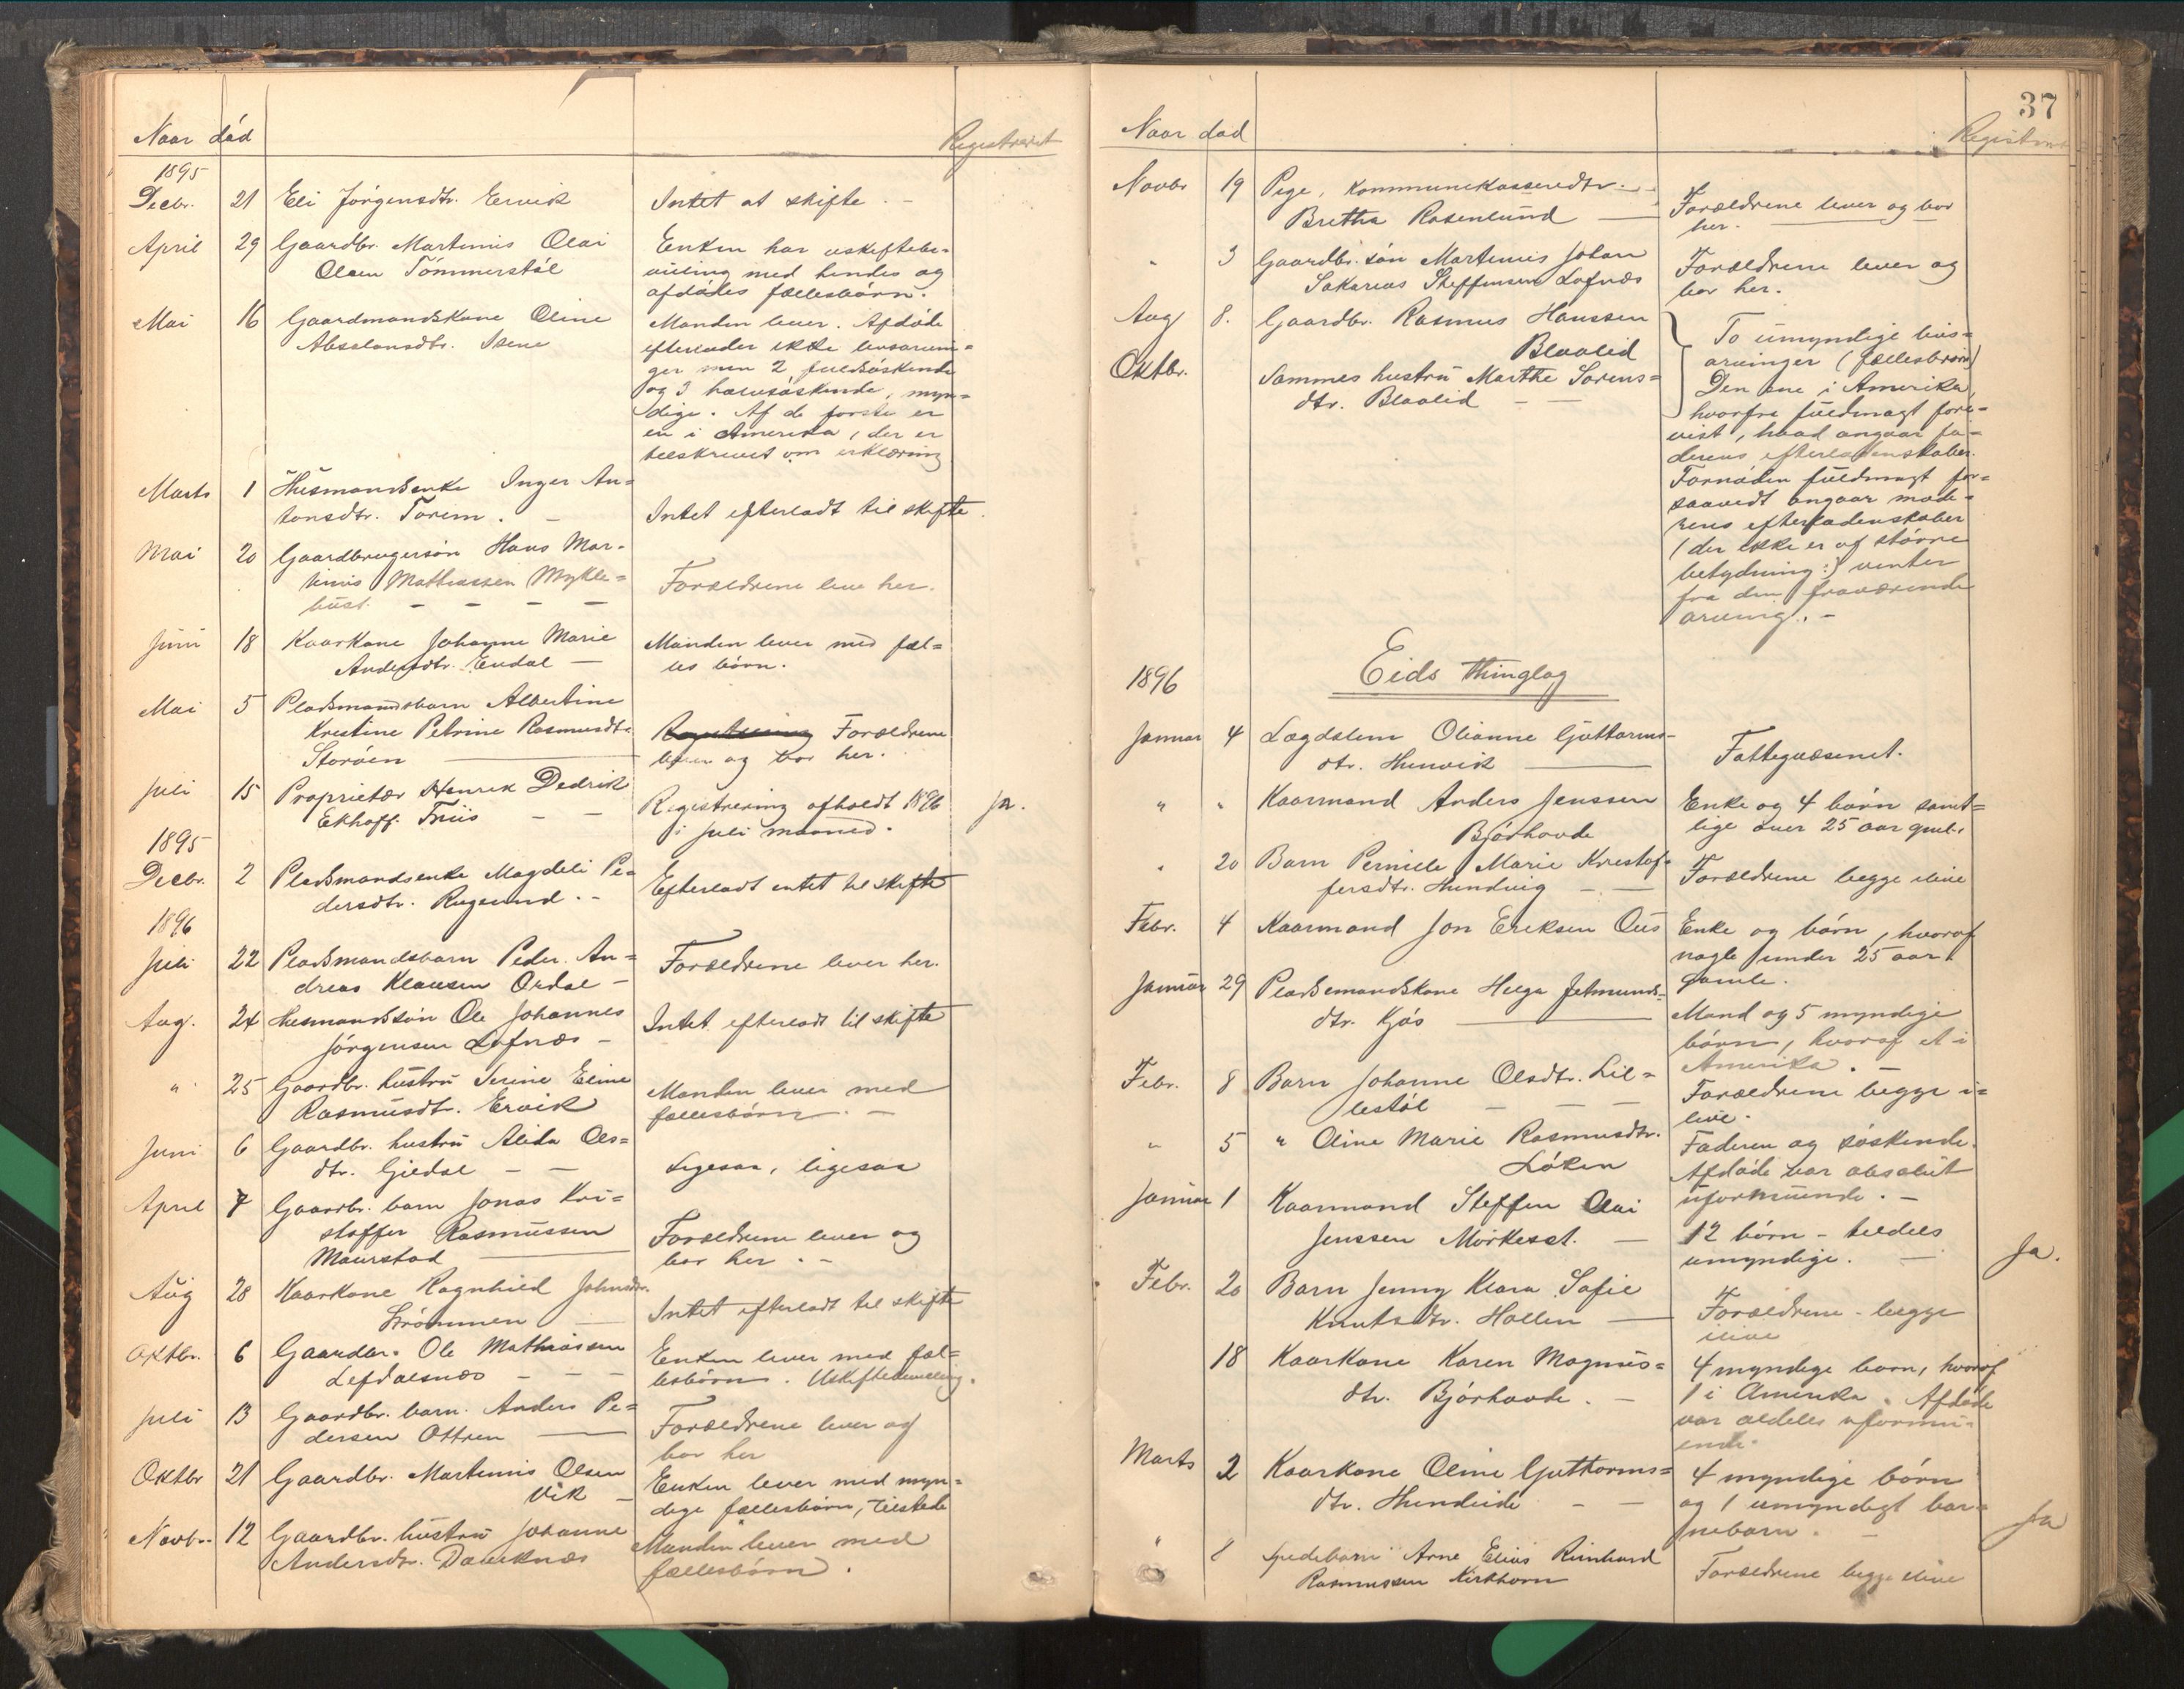 Naar död
Registreret
1895
Decbr. 21 Eli Jörgensdtr. Ervik Intet at skifte. -
April 29 Gaardbr. Martinus Olai
Olsen Tömmerstöl
Enken har uskiftebe-
villing med hendes og
afdödes fællesbörn.
Mai 16 Gaardmandskone Oline
Absalonsdtr. Isene
Manden lever. Afdöde
efterlader ikke livsarvin=
ger men 2 fuldsöskende
og 3 halvsöskende, myn=
dige. Af de förste er
en i Amerika, der er
tilskrevet om erklæring
Marts 1 Husmandsenke Inger An=
tonsdtr. Torem. -
Intet efterladt til skifte.
Mai 20 Gaardbrugersön Hans Mar-
tinus Mathiassen Mykle=
bust. - - - -
Forældrene leve her.
Juni 18 Kaarkone Johanne Marie
Andersdtr. Endal -
Manden lever med fæl=
les börn.
Mai 5 Pladsmandsbarn Albertine
Kristine Petrine Rasmusdtr.
Storöen
Registrering Forældrene
lever og bor her.
Juli 15 Proprietær Henrik Dedrik
Ekhoff Friis - -
Registrering afholdt 1896
i juli maaned.
Ja.
1895
Decbr. 2 Pladsmandsenke Magdeli Pe=
dersdtr. Rugsund. -
Efterladt intet til skifte
1896
Juli 22 Pladsmandsbarn Peder An=
dreas Klausen Ordal -
Forældrene lever her.
Aug. 24 Husmandssön Ole Johannes
Jörgensen Lofnæs -
Intet efterladt til skifte
" 25 Gaardbr. hustru Serine Eline
Rasmusdtr. Ervik
Manden lever med
fællesbörn. -
Juni 6 Gaardbr. hustru Alida Ols=
dtr. Gjedal - -
Ligesaa, ligesaa
April 7 Gaardbr. barn Jonas Kri=
stoffer Rasmussen
Maurstad
Forældrene lever og
bor her. -
Aug 28 Kaarkone Ragnhild Johnsdtr.
Strömmen
Intet efterladt til skifte
Oktbr. 6 Gaardbr. Ole Mathiassen
Lefdalsnæs - - -
Enken lever med fæl=
lesbörn. Uskiftebevilling.
Juli 13 Gaardbr. barn. Anders Pe=
dersen Ottren
Forældrene lever og
bor her
Oktbr 21 Gaardbr. Martinus Olsen
Vik -
Enken lever med myn=
dige fællesbörn, tilstede
Novbr. 12 Gaardbr. hustru Johanne
Andersdtr. Dauknæs
Manden lever med
fællesbörn.
37
Naar död
Registreret
Novbr 19 Pige, Kommunekasseredtr.
Bretha Rosenlund
Forældrene lever og bor
her.
" 3 Gaardbr. sön Martinus Johan
Sakarias Steffensen Lofnæs
Forældrene lever og
bor her.
Aug 8. Gaardbr. Rasmus Hanssen
Blaalid
Oktbr. Sammes hustru Marthe Sörens=
dtr. Blaalid - -
To umyndige livs=
arvinger (fællesbörn)
Den ene i Amerika,
hvorfra fuldmagt fore=
vist, hvad angaar fa=
derens efterladenskaber.
Fornöden fuldmagt for=
saavidt angaar mode=
rens efterladenskaber
(der ikke er af större
betydning:) venter
fra den fraværende
arving. -
Eids thinglag
1896
Januar 4 Lægdslem Olianne Guttorms-
dtr. Hunvik
Fattigvæsenet.
" " Kaarmand Anders Jenssen
Björhovde
Enke og 4 börn samt=
lige over 25 aar gml.
" 20 Barn Pernille Marie Kristof=
fersdtr. Hundvig - -
Forældrene begge ilive
Febr. 4 Kaarmand Jon Eriksen Ous
Enke og börn, hvoraf
nogle under 25 aar
gamle.
Januar 29 Pladsemandskone Helga Jetmunds=
dtr. Kjös
Mand og 5 myndige
börn, hvoraf et i
Amerika. -
Febr. 8 Barn Johanne Olsdtr. Lil=
lestöl - - -
Forældrene begge i=
live.
" 5 " Oline Marie Rasmusdtr.
Löken
Faderen og söskende.
Afdöde var absolut
uformuende. -
Januar 1 Kaarmand Steffen Olai
Jenssen Mörkesst. -
12 börn - tildels
umyndige.
Ja.
Febr. 20 Barn Jenny Klara Sofie
Knutsdtr. Hollen
Forældrene - begge
ilive
18 Kaarkone Karen Magnus=
dtr. Björhovde. -
4 myndige börn, hvoraf
1 i Amerika. Afdöde
var aldeles uformu=
ende.
Marts 2 Kaarkone Oline Guttorms=
dtr. Hundeide - -
4 myndige börn
og 1 umyndigt bar=
nebarn. -
Ja
" 8 Spedebarn Arne Elias Reinhard
Rasmussen Kirkhorn
Forældrene begge ilive